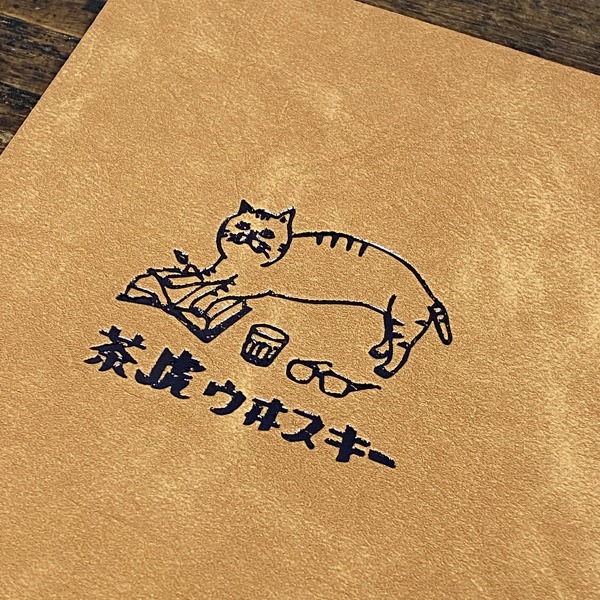 茶虎ウヰスキー